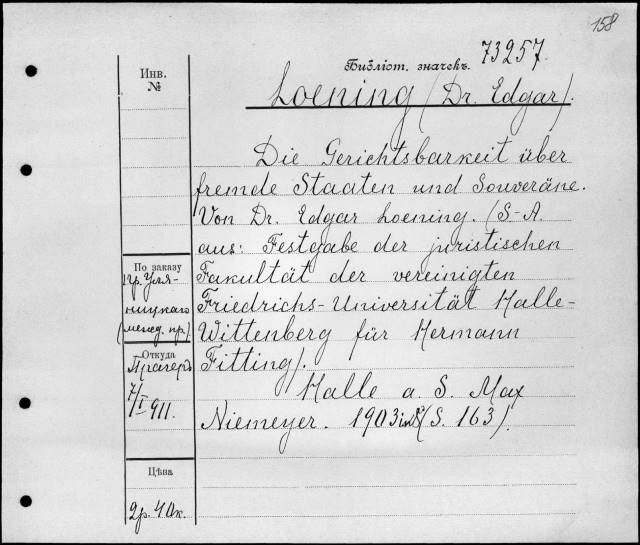 158
Библіот. значекъ. 73257.
Инв.
№
Loening (Dr. Edgar).
Die Gerichtsbarkeit über
fremde Staaten und Souveräne.
Von Dr. Edgar Loening. (S.-A.
aus: Festgabe der juristischen
Fakultät der vereinigten
Friedrichs-Universität Halle-
Wittenberg für Hermann
Fitting).
Halle a. S. Max
Niemeyer. 1903 in 8° (S. 163).
По заказу
гр. Уля-
ницкаго
(межд. пр.).
Откуда
Прагеръ
7/I 911.
Цѣна
2р. 40к.